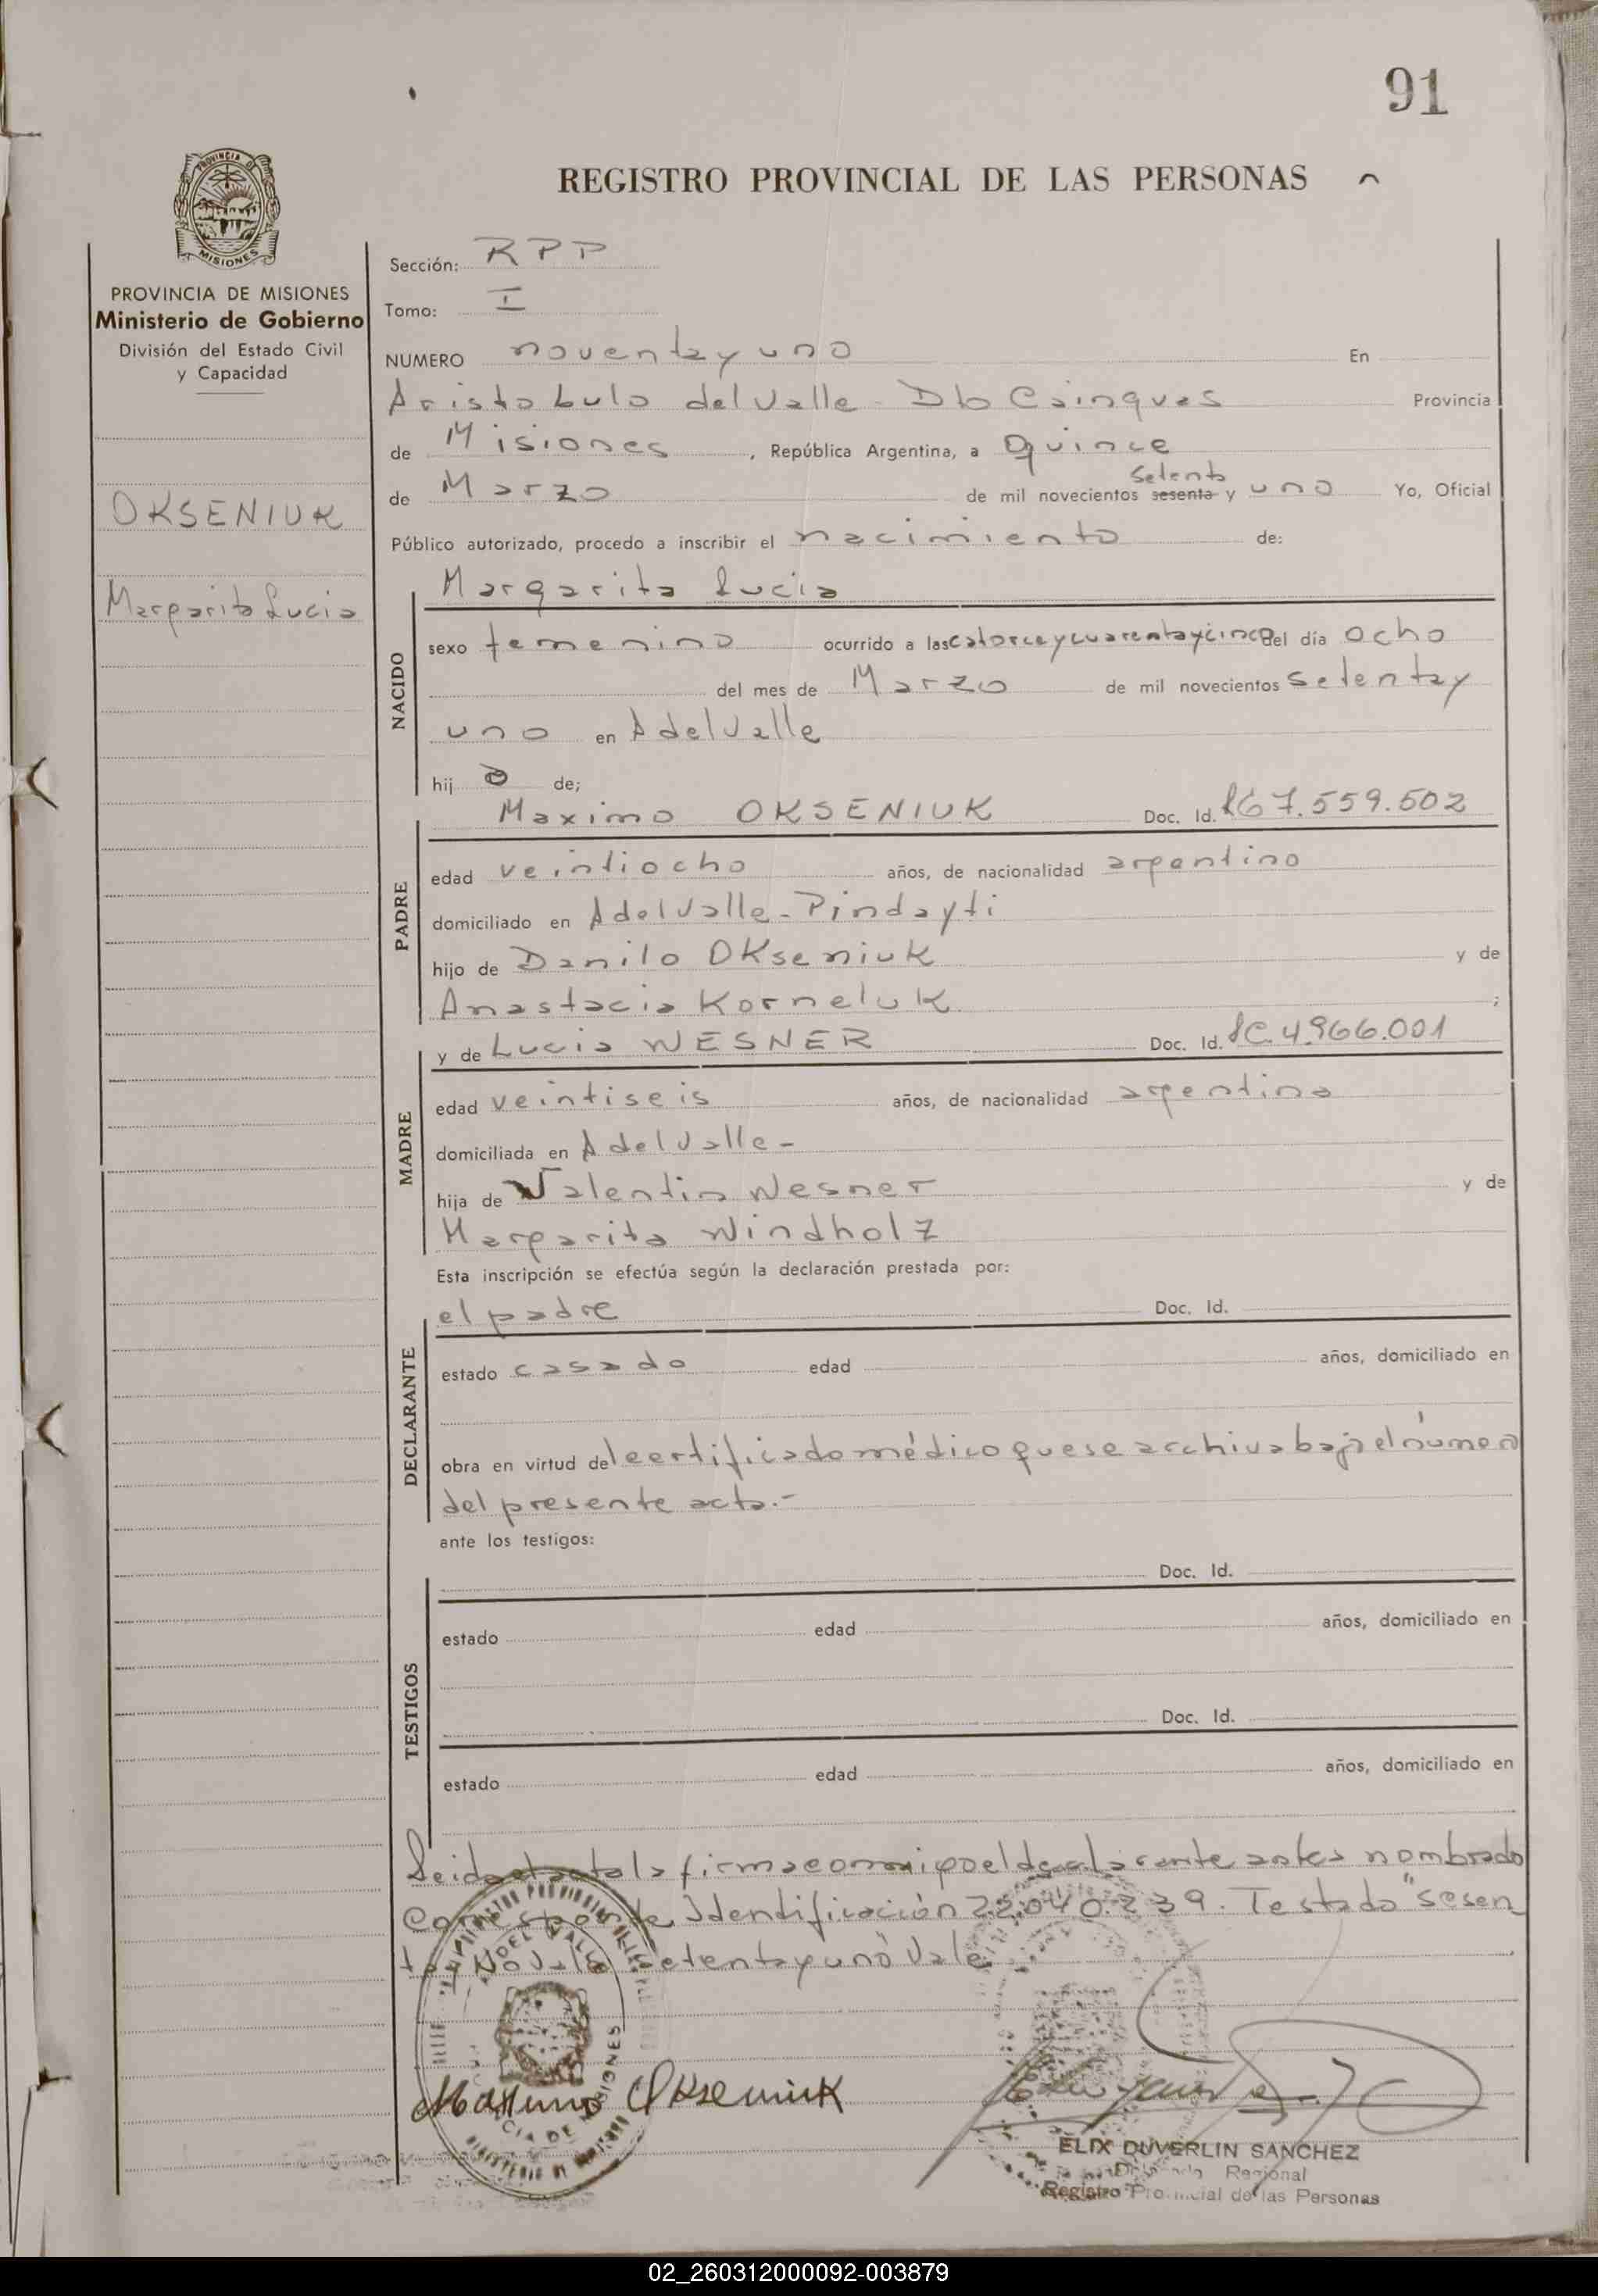 91
REGISTRO PROVINCIAL DE LAS PERSONAS
PROVINCIA DE MISIONES
Ministerio de Gobierno
División del Estado Civil
y Capacidad
OKSENIUK
Margarita Lucia
Sección: RPP
Tomo: I
NUMERO noventa y uno En
Aristobulo del Valle - Dto Cainguas Provincia
de Misiones, República Argentina, a Quince
setenta
de Marzo de mil novecientos sesenta y uno Yo, Oficial
Público autorizado, procedo a inscribir el nacimiento de:
NACIDO
Margarita Lucia
sexo femenino ocurrido a las catorce y cuarenta y cinco del día ocho
del mes de Marzo de mil novecientos setenta y
uno en A del Valle
hij a de;
PADRE
Maximo OKSENIUK Doc. Id. 7.559.502
edad veintiocho años, de nacionalidad argentino
domiciliado en A del Valle - Pindayti
hijo de Danilo OKseniuk y de
Anastacia Korneluk ;
MADRE
y de Lucia WESNER Doc. Id. LC. 4.966.001
edad veintiseis años, de nacionalidad argentina
domiciliada en A del Valle -
hija de Valentin Wesner y de
Margarita Windholz
Esta inscripción se efectúa según la declaración prestada por:
DECLARANTE
el padre Doc. Id.
estado casado edad años, domiciliado en
obra en virtud del certificado médico que se archiva bajo el número
del presente acta.-
ante los testigos:
TESTIGOS
Doc. Id.
estado edad años, domiciliado en
Doc. Id.
estado edad años, domiciliado en
Leida el acta la firma conmigo el declarante antes nombrado
Corresponde Identificación 22.040.239. Testado "sesen
ta" No vale setenta y uno Vale
Maximo Okseniuk
ELIX DUVERLIN SANCHEZ
Regional
Registro Provincial de las Personas
02_260312000092-003879